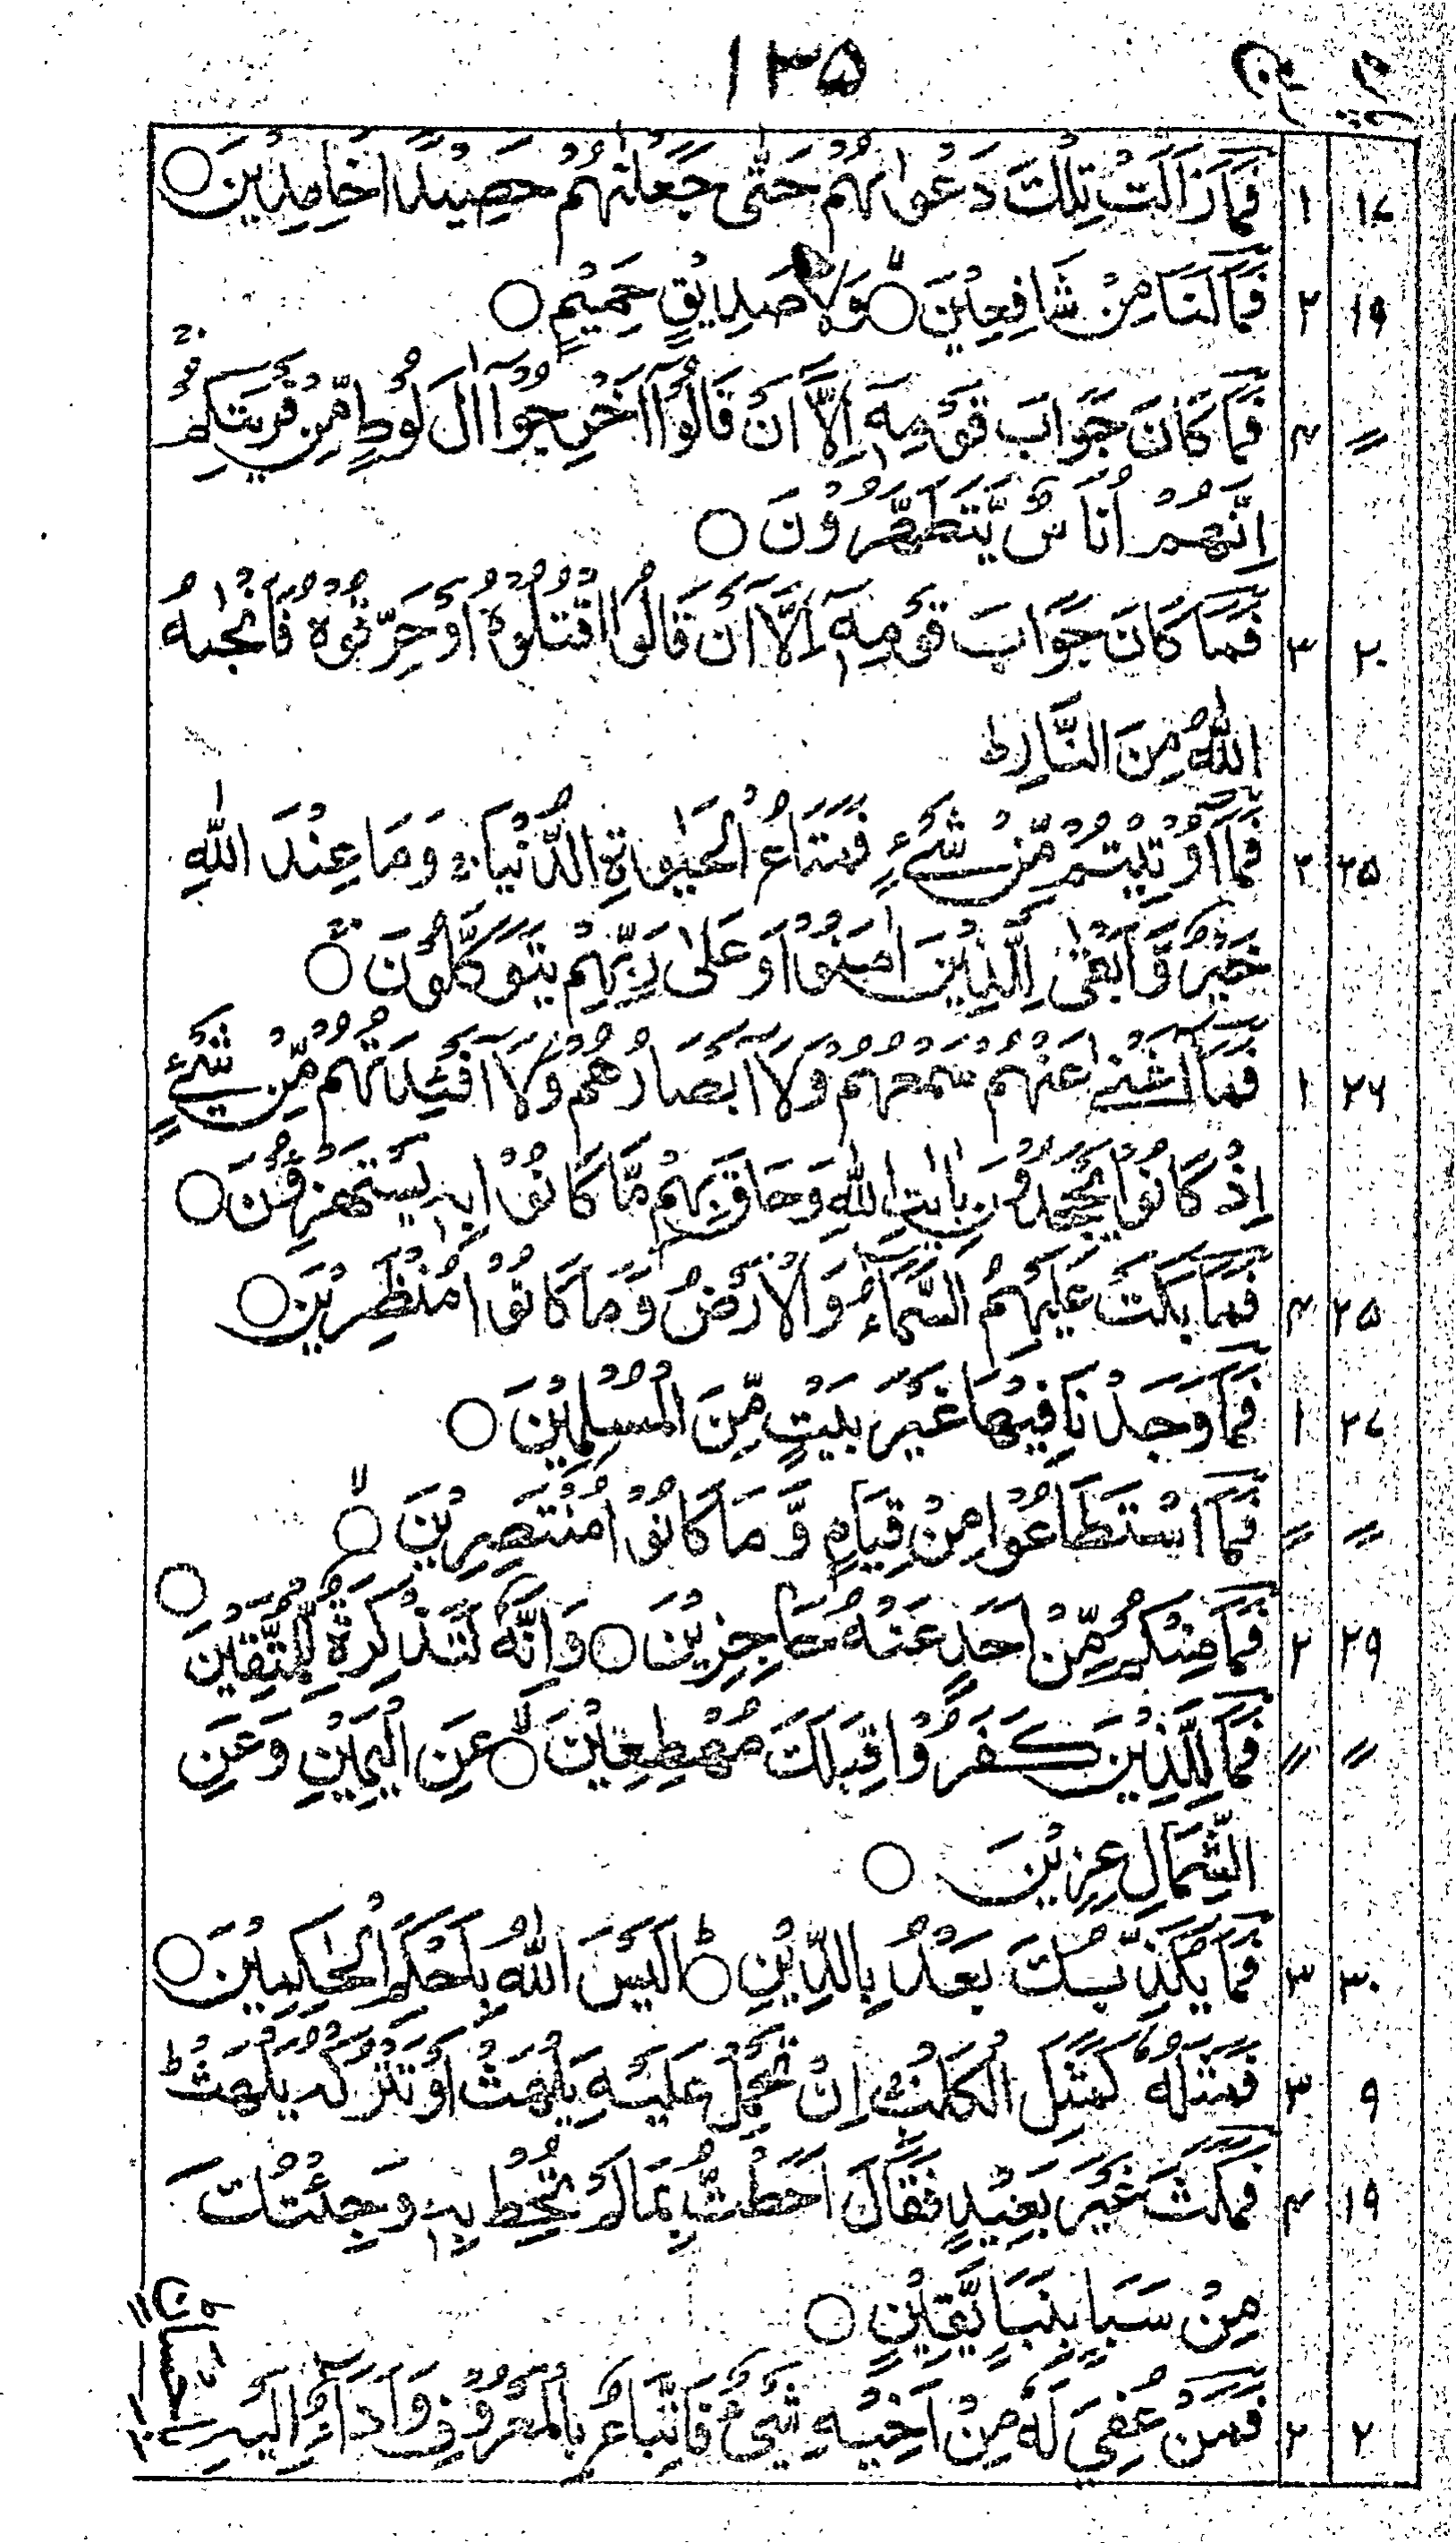 ۱۳۵
۱۷ ۱ فَمَا زَالَتْ تِلْكَ دَعْوٰىهُمْ حَتّٰى جَعَلْنٰهُمْ حَصِيْدًا خَامِدِيْنَ ○
۱۹ ۲ فَمَا لَنَا مِنْ شَافِعِيْنَ ○ وَلَا صَدِيْقٍ حَمِيْمٍ ○
۲۰
〃 ۴ فَمَا كَانَ جَوَابَ قَوْمِهٖٓ اِلَّآ اَنْ قَالُوْٓا اَخْرِجُوْٓا اٰلَ لُوْطٍ مِّنْ قَرْيَتِكُمْ
اِنَّهُمْ اُنَاسٌ يَّتَطَهَّرُوْنَ ○
۲۰ ۳ فَمَا كَانَ جَوَابَ قَوْمِهٖٓ اِلَّآ اَنْ قَالُوا اقْتُلُوْهُ اَوْ حَرِّقُوْهُ فَاَنْجٰىهُ
اللّٰهُ مِنَ النَّارِ ط
۲۵ ۲ فَمَآ اُوْتِيْتُمْ مِّنْ شَىْءٍ فَمَتَاعُ الْحَيٰوةِ الدُّنْيَا ۚ وَمَا عِنْدَ اللّٰهِ
خَيْرٌ وَّاَبْقٰى لِلَّذِيْنَ اٰمَنُوْا وَعَلٰى رَبِّهِمْ يَتَوَكَّلُوْنَ ○
۲۶ ۱ فَمَآ اَغْنٰى عَنْهُمْ سَمْعُهُمْ وَلَآ اَبْصَارُهُمْ وَلَآ اَفْـِٕدَتُهُمْ مِّنْ شَىْءٍ
اِذْ كَانُوْا يَجْحَدُوْنَ بِاٰيٰتِ اللّٰهِ وَحَاقَ بِهِمْ مَّا كَانُوْا بِهٖ يَسْتَهْزِءُوْنَ ○
۲۵ ۴ فَمَا بَكَتْ عَلَيْهِمُ السَّمَآءُ وَالْاَرْضُ وَمَا كَانُوْا مُنْظَرِيْنَ ○
۲۷ ۱ فَمَا وَجَدْنَا فِيْهَا غَيْرَ بَيْتٍ مِّنَ الْمُسْلِمِيْنَ ○
〃 〃 فَمَا اسْتَطَاعُوْا مِنْ قِيَامٍ وَّمَا كَانُوْا مُنْتَصِرِيْنَ ○
۲۹ ۲ فَمَا مِنْكُمْ مِّنْ اَحَدٍ عَنْهُ حٰجِزِيْنَ ○ وَاِنَّهٗ لَتَذْكِرَةٌ لِّلْمُتَّقِيْنَ ○
〃 〃 فَمَالِ الَّذِيْنَ كَفَرُوْا قِبَلَكَ مُهْطِعِيْنَ ○ عَنِ الْيَمِيْنِ وَعَنِ
الشِّمَالِ عِزِيْنَ ○
۳۰ ۳ فَمَا يُكَذِّبُكَ بَعْدُ بِالدِّيْنِ ○ اَلَيْسَ اللّٰهُ بِاَحْكَمِ الْحٰكِمِيْنَ ○
۹ ۳ فَمَثَلُهٗ كَمَثَلِ الْكَلْبِ ۚ اِنْ تَحْمِلْ عَلَيْهِ يَلْهَثْ اَوْ تَتْرُكْهُ يَلْهَثْ ط
۱۹ ۴ فَمَكَثَ غَيْرَ بَعِيْدٍ فَقَالَ اَحَطْتُّ بِمَا لَمْ تُحِطْ بِهٖ وَجِئْتُكَ
مِنْ سَبَاٍ بِنَبَاٍ يَّقِيْنٍ ○
۲ ۲ فَمَنْ عُفِيَ لَهٗ مِنْ اَخِيْهِ شَىْءٌ فَاتِّبَاعٌ بِالْمَعْرُوْفِ وَاَدَآءٌ اِلَيْهِ